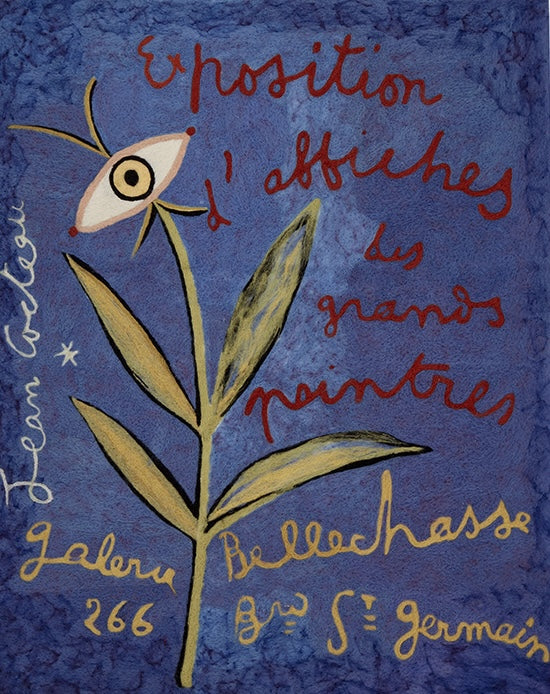 Exposition
d'affiches
des
grands
peintres
Jean Cocteau
Galerie Bellechasse
266 Brd St Germain